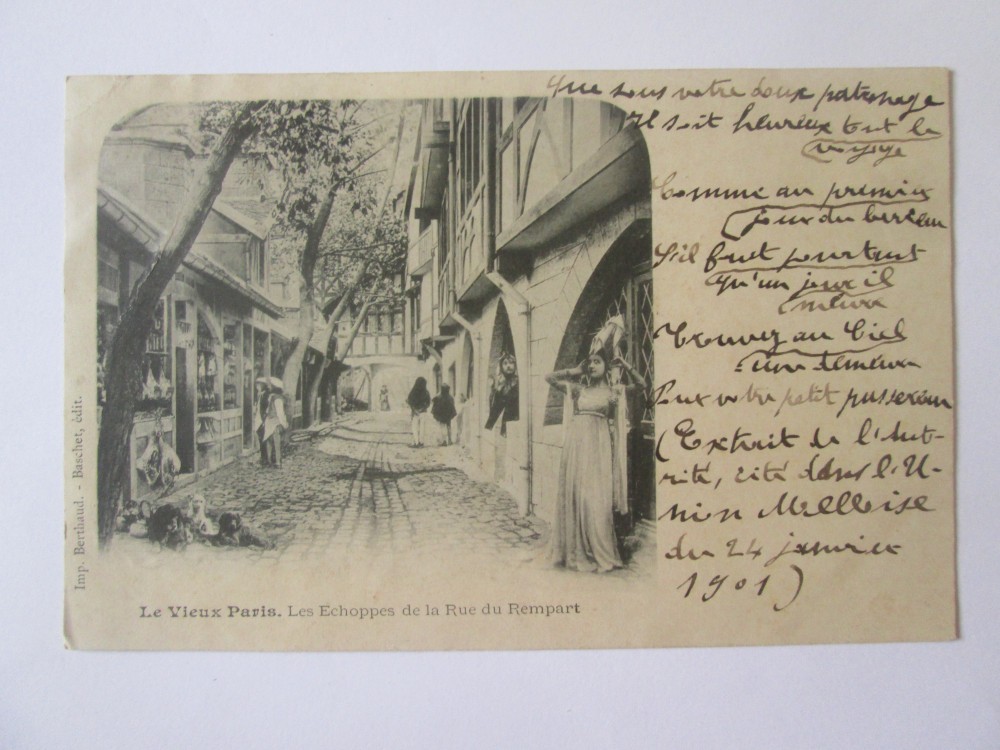 Que sous votre doux patronage
Il soit heureux tout le
voyage
Comme au premier
jour du berceau
S'il faut pourtant
qu'un jour il
meure
Trouvez au Ciel
une demeure
Pour votre petit passereau
(Extrait de l'Auto-
rité, cité dans l'U-
nion Melloise
du 24 janvier
1901)
Imp. Berthaud. - Baschet, édit.
Le Vieux Paris. Les Echoppes de la Rue du Rempart